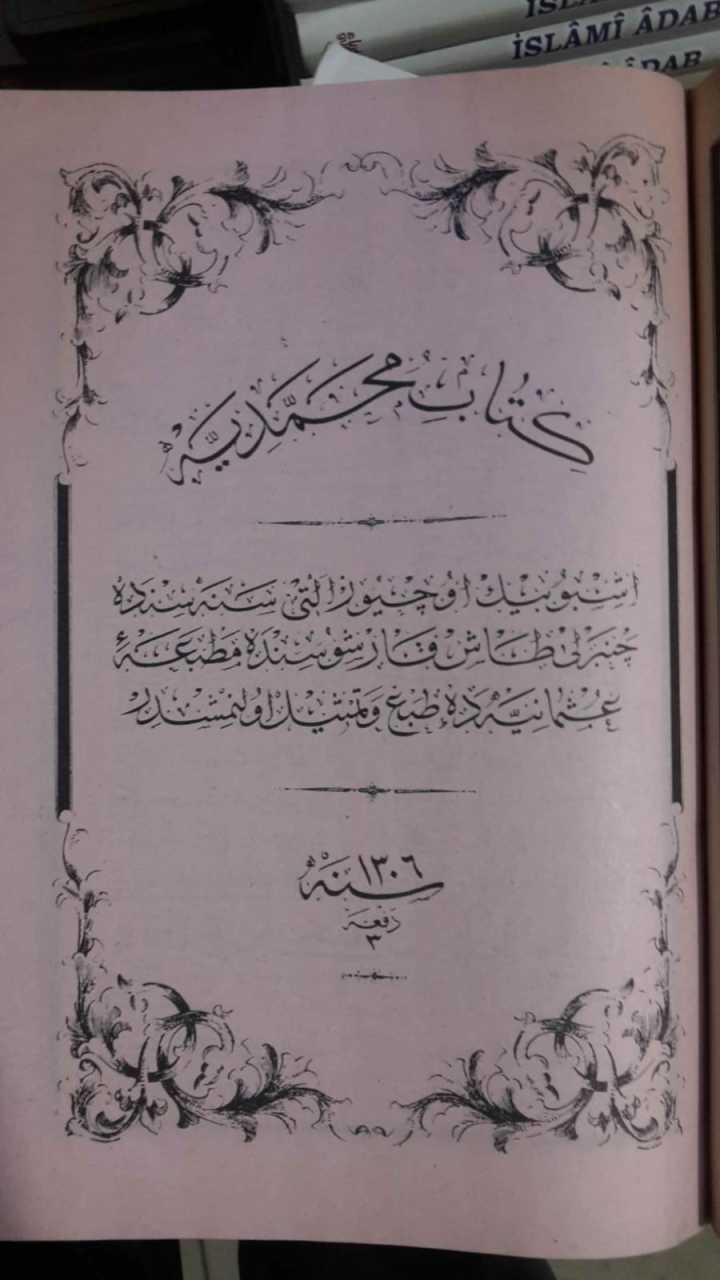 İSL
İSLÂMÎ ÂDAB
ÂDAB
كتاب محمديه
اشبو بيك اوچيوز التى سنه سنده
چنبرلى طاش قارشوسنده مطبعهٔ
عثمانيه ده طبع وتمثيل اولنمشدر
سنه ١٣٠٦
دفعه
٣